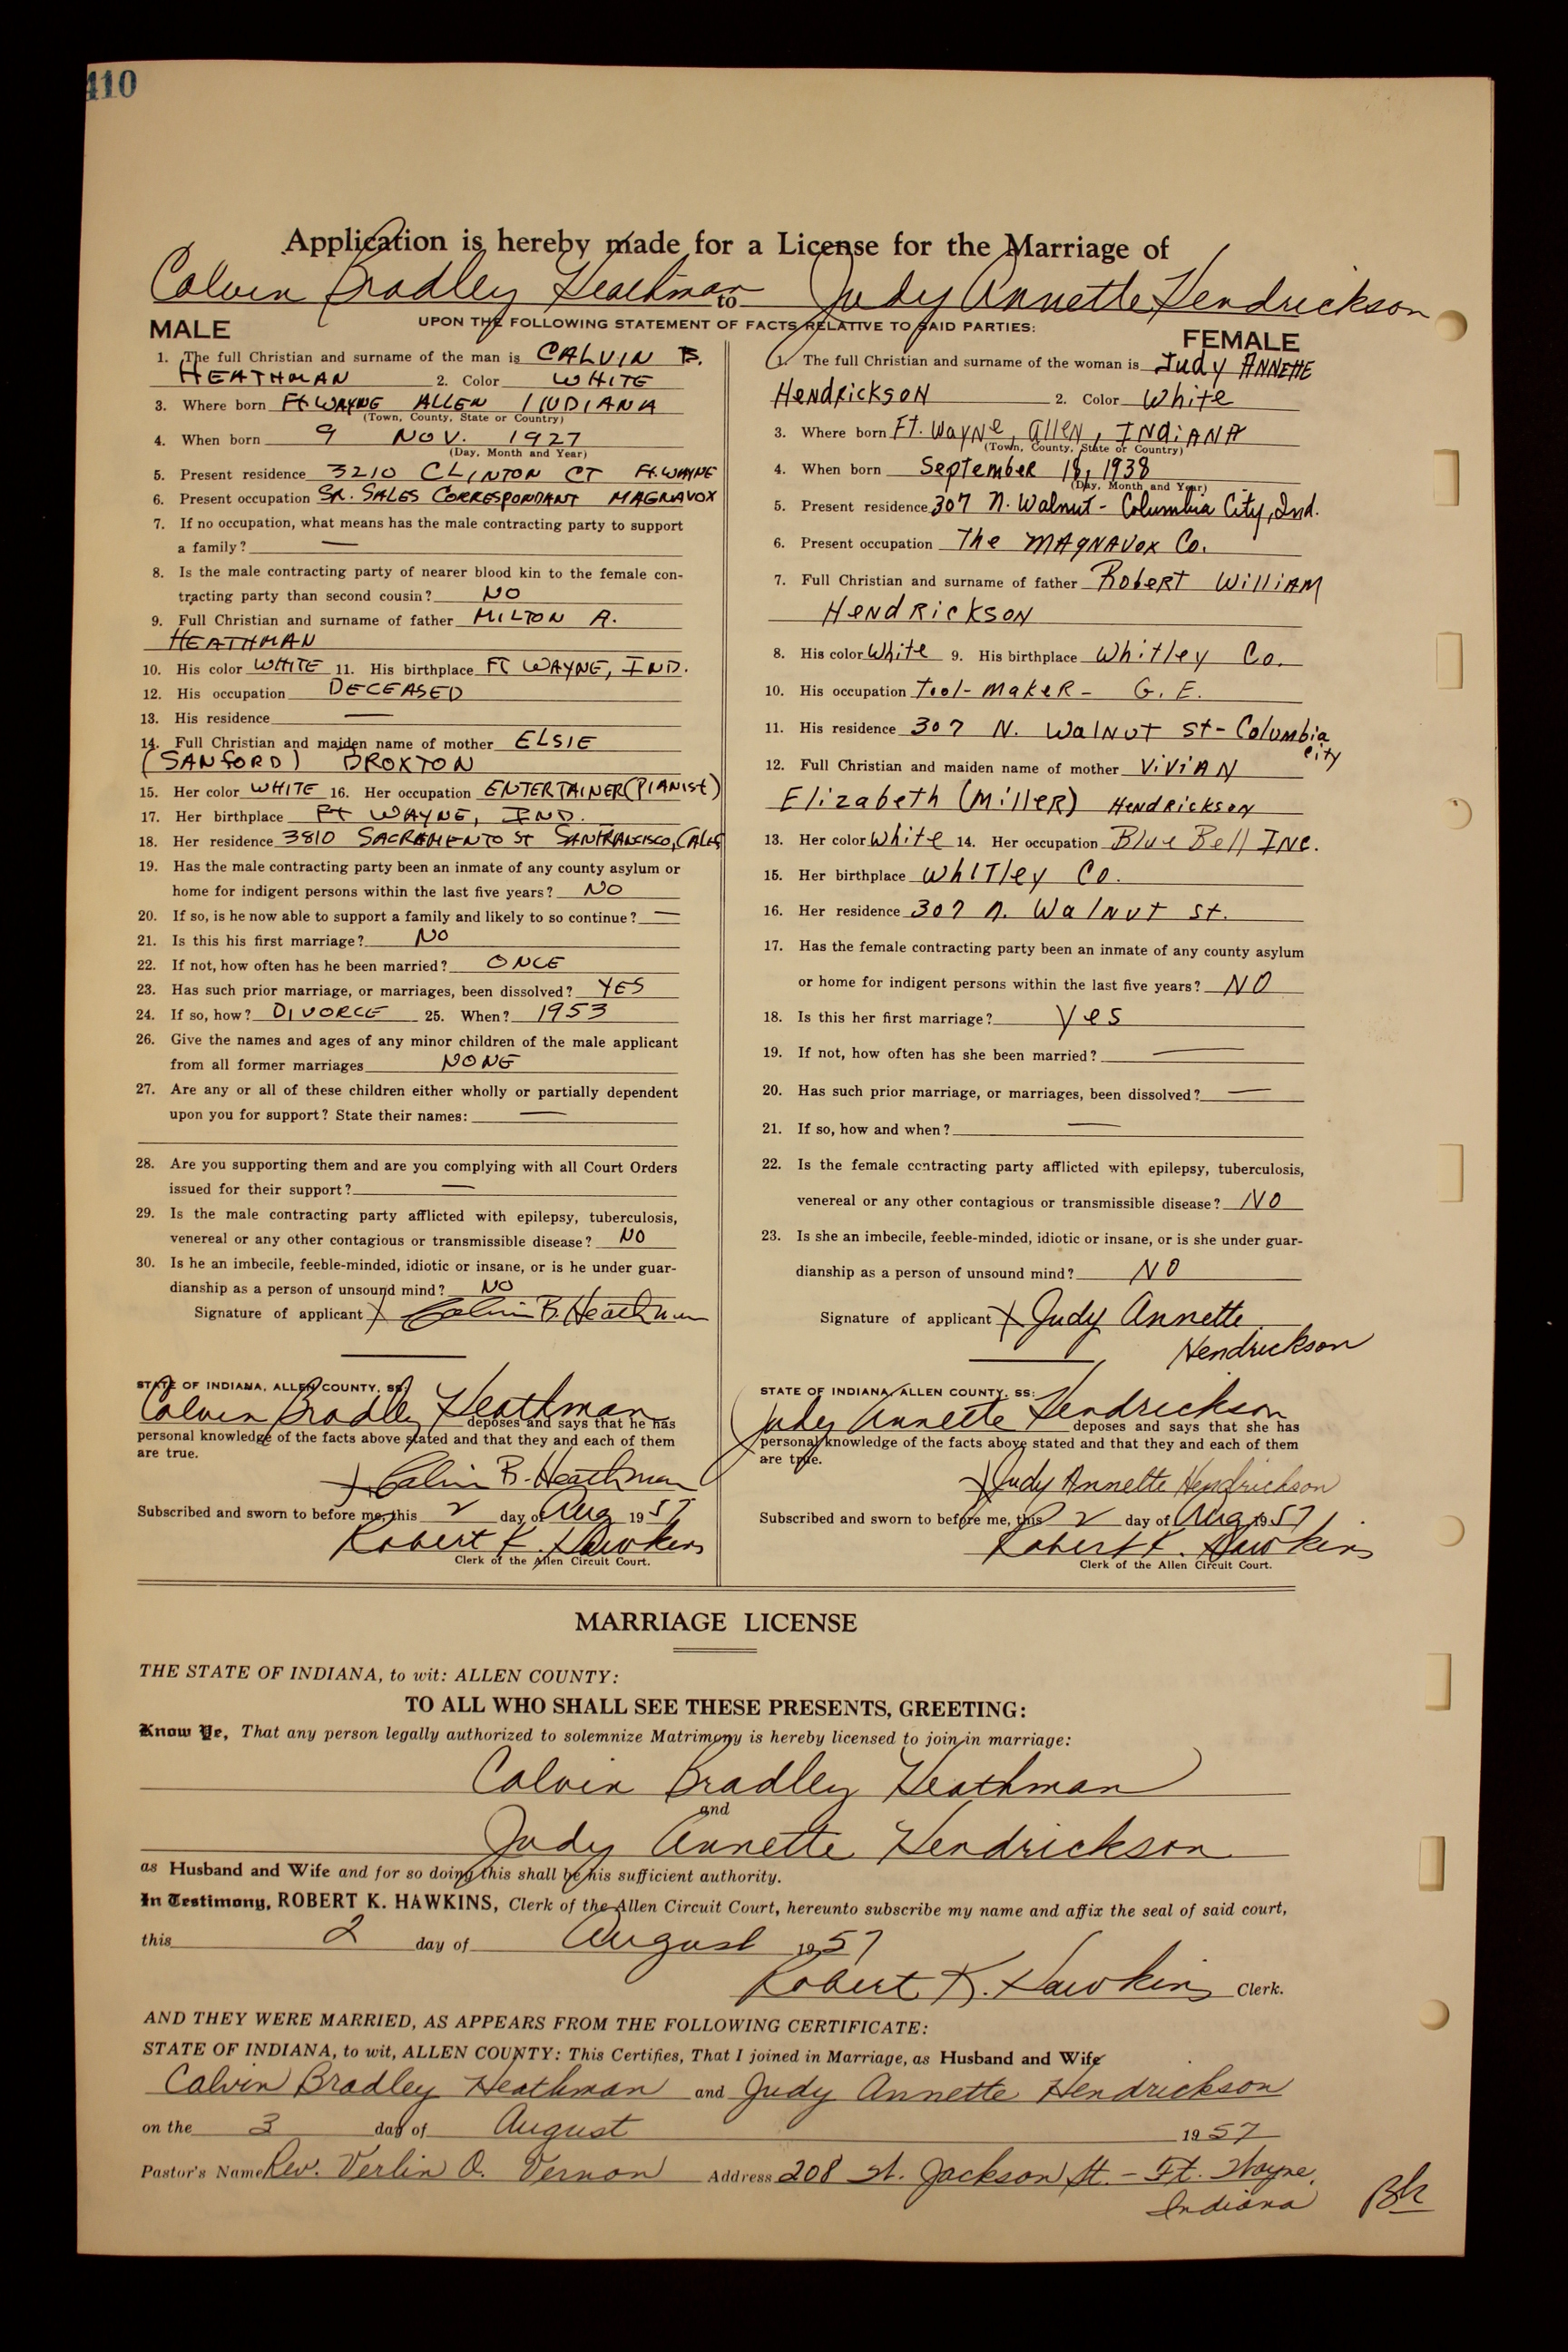 410
Application is hereby made for a License for the Marriage of
Calvin Bradley Heathman to Judy Annette Hendrickson
UPON THE FOLLOWING STATEMENT OF FACTS RELATIVE TO SAID PARTIES:
MALE
1. The full Christian and surname of the man is CALVIN B.
HEATHMAN 2. Color WHITE
3. Where born FT WAYNE ALLEN INDIANA
(Town, County, State or Country)
4. When born 9 NOV. 1927
(Day, Month and Year)
5. Present residence 3210 CLINTON CT Ft. WAYNE
6. Present occupation SR. SALES CORRESPONDANT MAGNAVOX
7. If no occupation, what means has the male contracting party to support
a family? —
8. Is the male contracting party of nearer blood kin to the female con-
tracting party than second cousin? NO
9. Full Christian and surname of father MILTON A.
HEATHMAN
10. His color WHITE 11. His birthplace FT WAYNE, IND.
12. His occupation DECEASED
13. His residence —
14. Full Christian and maiden name of mother ELSIE
(SANFORD) BROXTON
15. Her color WHITE 16. Her occupation ENTERTAINER (PIANIST)
17. Her birthplace FT WAYNE, IND.
18. Her residence 3810 SACRAMENTO ST SANFRANCISCO, CALIF
19. Has the male contracting party been an inmate of any county asylum or
home for indigent persons within the last five years? NO
20. If so, is he now able to support a family and likely to so continue? —
21. Is this his first marriage? NO
22. If not, how often has he been married? ONCE
23. Has such prior marriage, or marriages, been dissolved? YES
24. If so, how? DIVORCE 25. When? 1953
26. Give the names and ages of any minor children of the male applicant
from all former marriages NONE
27. Are any or all of these children either wholly or partially dependent
upon you for support? State their names: —
28. Are you supporting them and are you complying with all Court Orders
issued for their support? —
29. Is the male contracting party afflicted with epilepsy, tuberculosis,
venereal or any other contagious or transmissible disease? NO
30. Is he an imbecile, feeble-minded, idiotic or insane, or is he under guar-
dianship as a person of unsound mind? NO
Signature of applicant X Calvin B. Heathman
STATE OF INDIANA, ALLEN COUNTY, SS:
Calvin Bradley Heathman deposes and says that he has
personal knowledge of the facts above stated and that they and each of them
are true.
X Calvin B. Heathman
Subscribed and sworn to before me, this 2 day of Aug 1957
Robert K. Hawkins
Clerk of the Allen Circuit Court.
FEMALE
1. The full Christian and surname of the woman is Judy ANNETTE
HendRickson 2. Color White
3. Where born Ft. Wayne, Allen, INdiANA
(Town, County, State or Country)
4. When born September 18, 1938
(Day, Month and Year)
5. Present residence 307 N. Walnut - Columbia City, Ind.
6. Present occupation The MAgNAVox Co.
7. Full Christian and surname of father RobeRT WilliAM
HendRickson
8. His color White 9. His birthplace Whitley Co.
10. His occupation Tool-makeR - G. E.
11. His residence 307 N. Walnut St - Columbia
City
12. Full Christian and maiden name of mother ViViAN
Elizabeth (MilleR) HendRickson
13. Her color White 14. Her occupation Blue Bell INC.
15. Her birthplace Whitley Co.
16. Her residence 307 N. Walnut St.
17. Has the female contracting party been an inmate of any county asylum
or home for indigent persons within the last five years? NO
18. Is this her first marriage? Yes
19. If not, how often has she been married? —
20. Has such prior marriage, or marriages, been dissolved? —
21. If so, how and when? —
22. Is the female contracting party afflicted with epilepsy, tuberculosis,
venereal or any other contagious or transmissible disease? NO
23. Is she an imbecile, feeble-minded, idiotic or insane, or is she under guar-
dianship as a person of unsound mind? NO
Signature of applicant X Judy Annette
Hendrickson
STATE OF INDIANA, ALLEN COUNTY, SS:
Judy Annette Hendrickson deposes and says that she has
personal knowledge of the facts above stated and that they and each of them
are true.
X Judy Annette Hendrickson
Subscribed and sworn to before me, this 2 day of Aug 1957
Robert K. Hawkins
Clerk of the Allen Circuit Court.
MARRIAGE LICENSE
THE STATE OF INDIANA, to wit: ALLEN COUNTY:
TO ALL WHO SHALL SEE THESE PRESENTS, GREETING:
Know Ye, That any person legally authorized to solemnize Matrimony is hereby licensed to join in marriage:
Calvin Bradley Heathman
and
Judy Annette Hendrickson
as Husband and Wife and for so doing this shall be his sufficient authority.
In Testimony, ROBERT K. HAWKINS, Clerk of the Allen Circuit Court, hereunto subscribe my name and affix the seal of said court,
this 2 day of August 1957
Robert K. Hawkins Clerk.
AND THEY WERE MARRIED, AS APPEARS FROM THE FOLLOWING CERTIFICATE:
STATE OF INDIANA, to wit, ALLEN COUNTY: This Certifies, That I joined in Marriage, as Husband and Wife
Calvin Bradley Heathman and Judy Annette Hendrickson
on the 3 day of August 1957
Pastor's Name Rev. Verlin O. Vernon Address 208 W. Jackson St. - Ft. Wayne,
Indiana
Bh